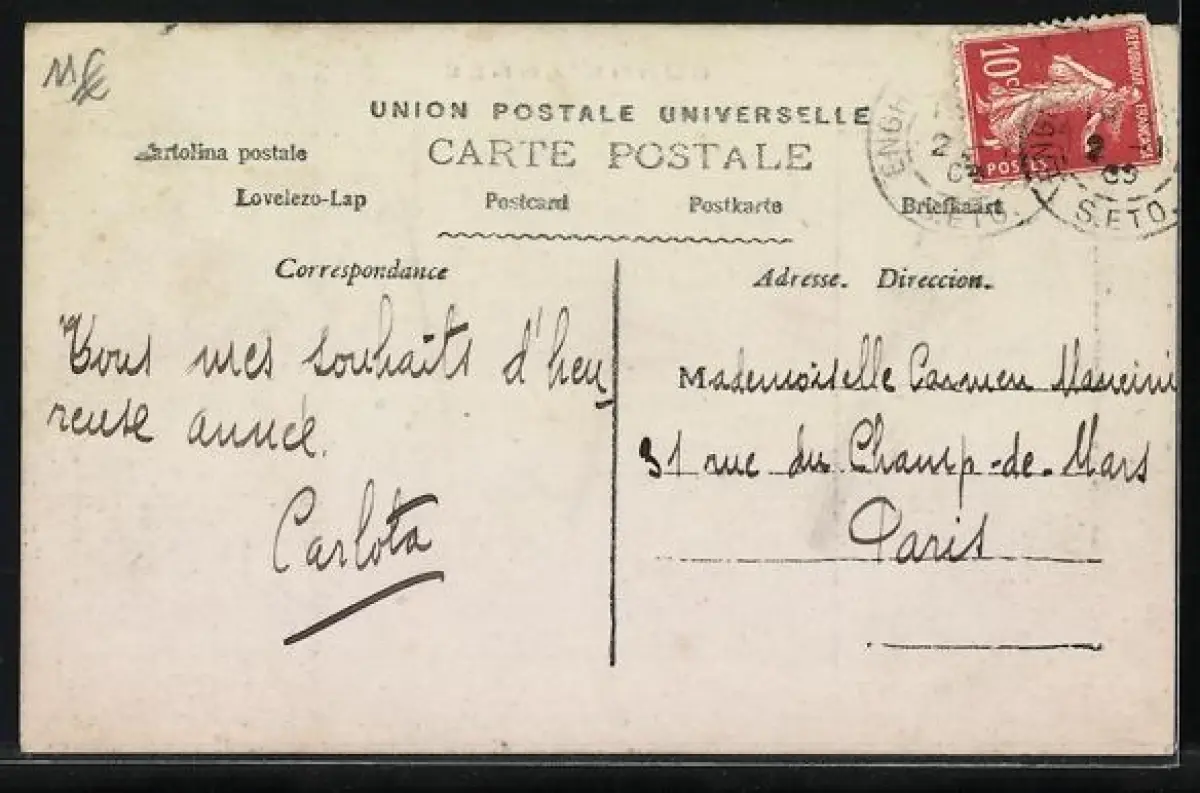 UNION POSTALE UNIVERSELLE
CARTE POSTALE
Cartolina postale
Lovelezo-Lap Postcard Postkarte Briefkaart
Correspondance
Adresse. Direccion.
10c
REPUBLIQUE FRANÇAISE
POSTES
ENGH
2
S.ETO.
ENGH
2
09
S.ETO.
Tous mes souhaits d'heu-
reuse année.
Carlota
Mademoiselle Carmen Mancini
31 rue du Champ-de-Mars
Paris